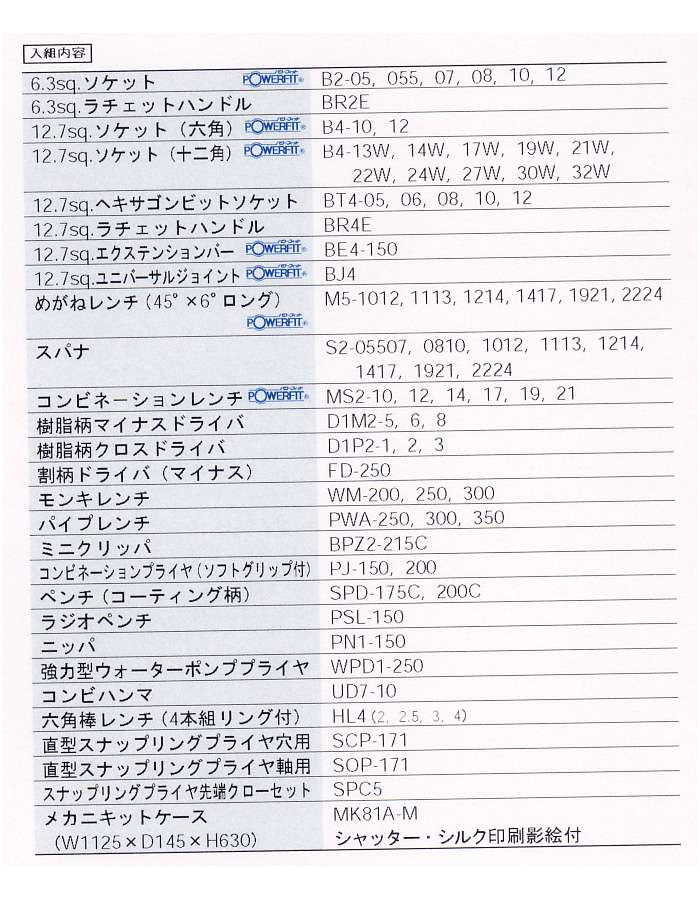 入組内容
6.3sq.ソケット POWERFIT® B2-05, 055, 07, 08, 10, 12
6.3sq.ラチェットハンドル BR2E
12.7sq.ソケット(六角) POWERFIT® B4-10, 12
12.7sq.ソケット(十二角) POWERFIT® B4-13W, 14W, 17W, 19W, 21W,
22W, 24W, 27W, 30W, 32W
12.7sq.ヘキサゴンビットソケット BT4-05, 06, 08, 10, 12
12.7sq.ラチェットハンドル BR4E
12.7sq.エクステンションバー POWERFIT® BE4-150
12.7sq.ユニバーサルジョイント POWERFIT® BJ4
めがねレンチ(45°×6°ロング) M5-1012, 1113, 1214, 1417, 1921, 2224
POWERFIT®
スパナ S2-05507, 0810, 1012, 1113, 1214,
1417, 1921, 2224
コンビネーションレンチ POWERFIT® MS2-10, 12, 14, 17, 19, 21
樹脂柄マイナスドライバ D1M2-5, 6, 8
樹脂柄クロスドライバ D1P2-1, 2, 3
割柄ドライバ(マイナス) FD-250
モンキレンチ WM-200, 250, 300
パイプレンチ PWA-250, 300, 350
ミニクリッパ BPZ2-215C
コンビネーションプライヤ(ソフトグリップ付) PJ-150, 200
ペンチ(コーティング柄) SPD-175C, 200C
ラジオペンチ PSL-150
ニッパ PN1-150
強力型ウォーターポンププライヤ WPD1-250
コンビハンマ UD7-10
六角棒レンチ(4本組リング付) HL4(2, 2.5, 3, 4)
直型スナップリングプライヤ穴用 SCP-171
直型スナップリングプライヤ軸用 SOP-171
スナップリングプライヤ先端クローセット SPC5
メカニキットケース MK81A-M
(W1125×D145×H630) シャッター・シルク印刷影絵付